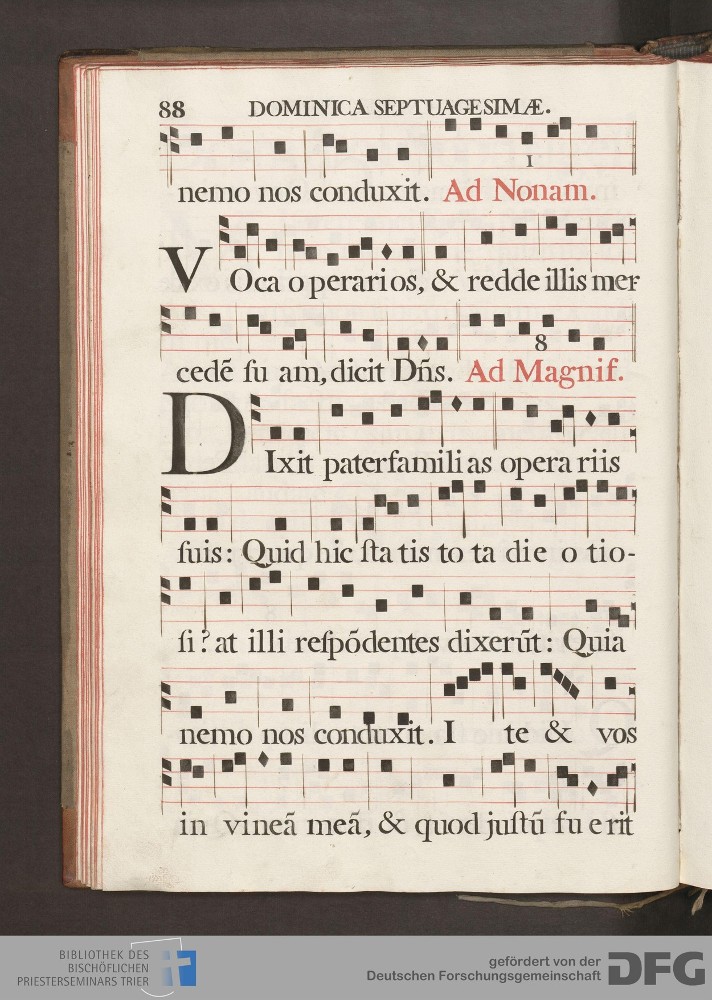 88 DOMINICA SEPTUAGESIMÆ.
1
nemo nos conduxit. Ad Nonam.
VOca operarios, & redde illis mer-
8
cedē ſuam, dicit Dn̄s. Ad Magnif.
DIxit paterfamilias operariis
ſuis: Quid hic ſtatis tota die otio-
ſi? at illi reſpōdentes dixerūt: Quia
nemo nos conduxit. Ite & vos
in vineā meā, & quod juſtū fuerit
BIBLIOTHEK DES
BISCHÖFLICHEN
PRIESTERSEMINARS TRIER
gefördert von der
Deutschen Forschungsgemeinschaft DFG